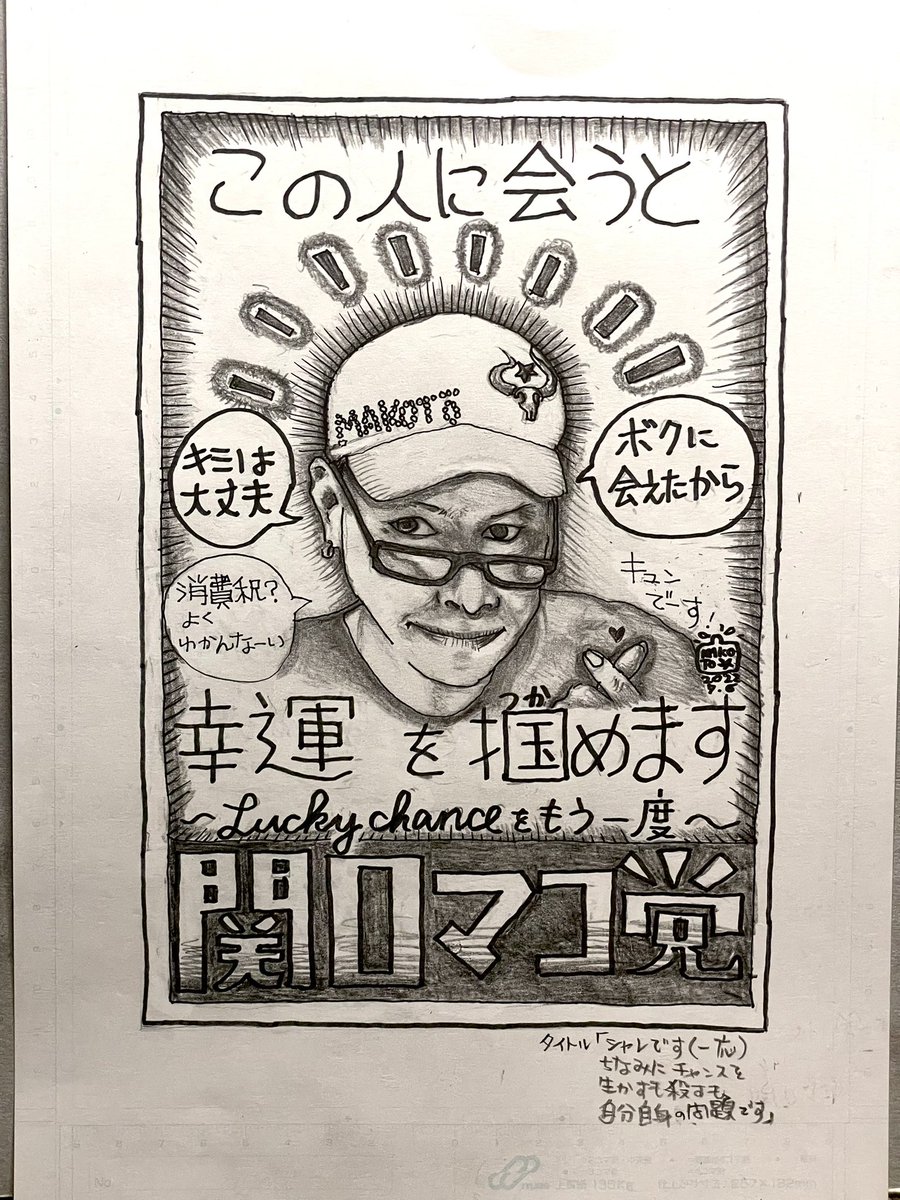 この人に会うと
MAKOTO
キミは
大丈夫
ボクに
会えたから
消費税?
よく
わかんなーい
キュン
でーす!
2022
幸運を掴めます
つか
〜Lucky chanceをもう一度〜
関口マコ党
タイトル「シャレです(一応)
ちなみにチャンスを
生かすも殺すも、
自分自身の問題です」
No